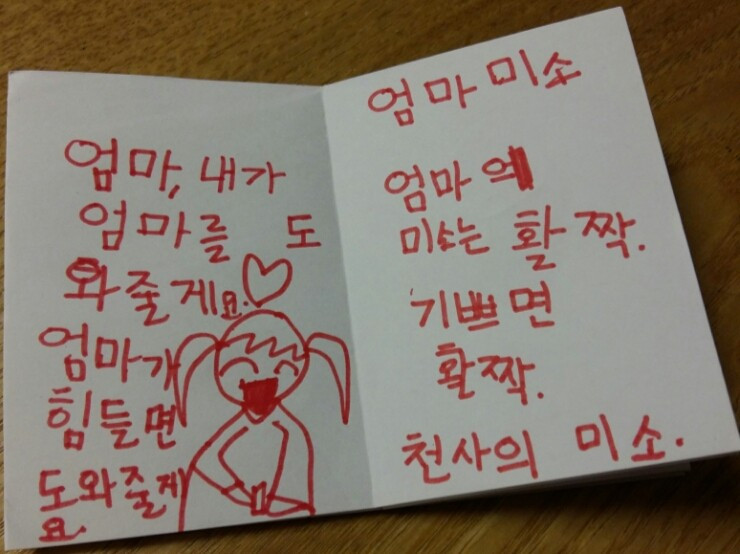 엄마, 내가
엄마를 도
와줄게요.
엄마가
힘들면
도와줄게
요.
엄마 미소
엄마 의
미소는 활짝.
기쁘면
활짝.
천사의 미소.